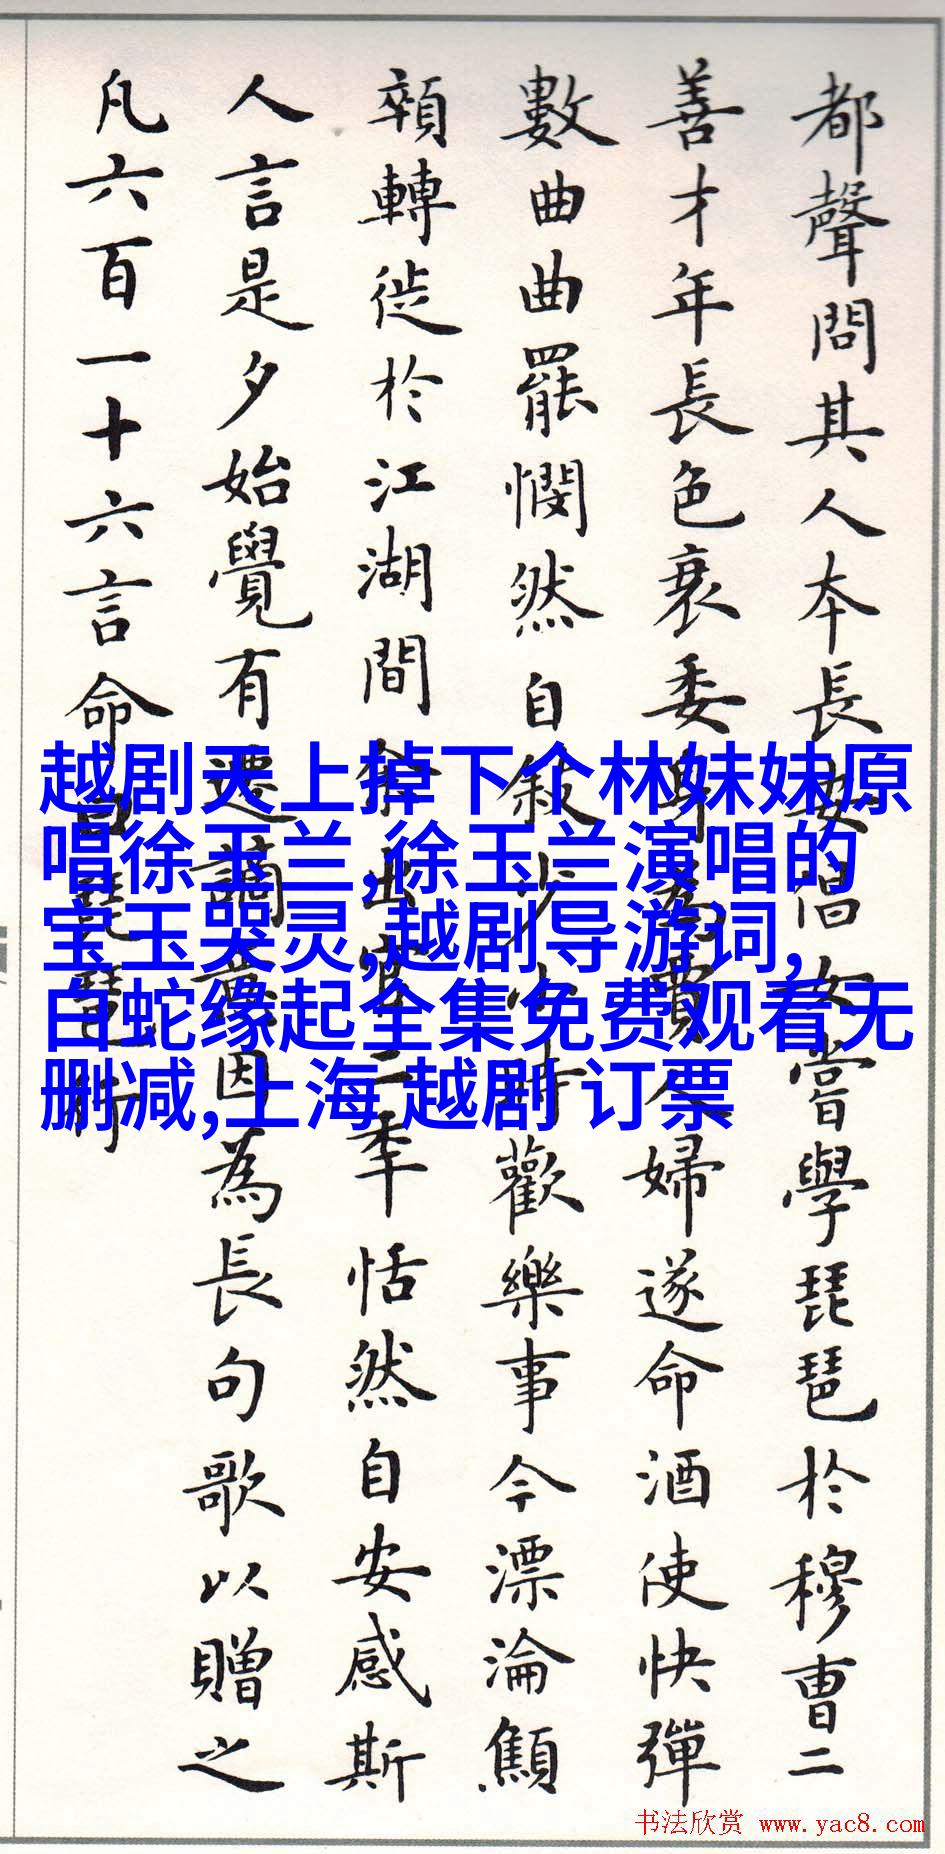 都聲問其人本長安倡女嘗學琵琶於穆曹二
善才年長色衰委身為賈人婦遂命酒使快彈
數曲曲罷憫然自敘少小時歡樂事今漂淪顦
顇轉徙於江湖間余出官二年恬然自安感斯
人言是夕始覺有遷謫意因為長句歌以贈之
凡六百一十六言命曰琵琶行
越剧天上掉下个林妹妹原
唱徐玉兰,徐玉兰演唱的
宝玉哭灵,越剧导游词,
白蛇缘起全集免费观看无
删减,上海 越剧 订票
书法欣赏 www.yac8.com